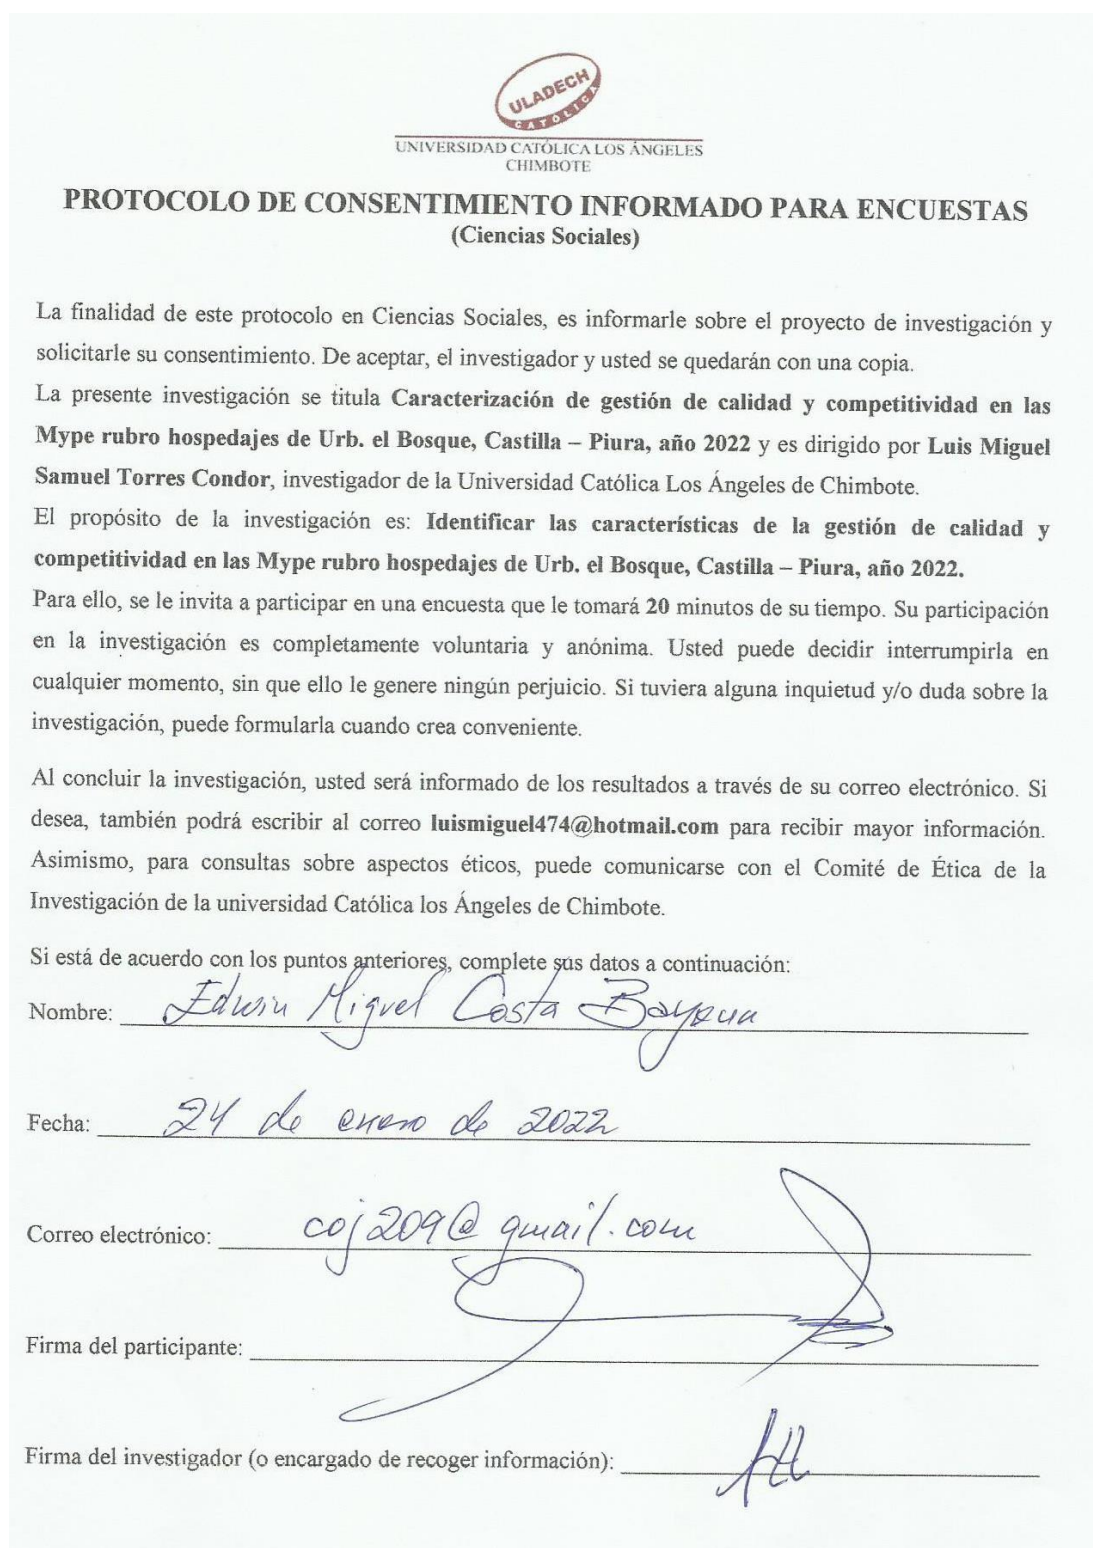 ULADECH
CATOLICA
UNIVERSIDAD CATÓLICA LOS ÁNGELES
CHIMBOTE
PROTOCOLO DE CONSENTIMIENTO INFORMADO PARA ENCUESTAS
(Ciencias Sociales)
La finalidad de este protocolo en Ciencias Sociales, es informarle sobre el proyecto de investigación y
solicitarle su consentimiento. De aceptar, el investigador y usted se quedarán con una copia.
La presente investigación se titula Caracterización de gestión de calidad y competitividad en las
Mype rubro hospedajes de Urb. el Bosque, Castilla – Piura, año 2022 y es dirigido por Luis Miguel
Samuel Torres Condor, investigador de la Universidad Católica Los Ángeles de Chimbote.
El propósito de la investigación es: Identificar las características de la gestión de calidad y
competitividad en las Mype rubro hospedajes de Urb. el Bosque, Castilla – Piura, año 2022.
Para ello, se le invita a participar en una encuesta que le tomará 20 minutos de su tiempo. Su participación
en la investigación es completamente voluntaria y anónima. Usted puede decidir interrumpirla en
cualquier momento, sin que ello le genere ningún perjuicio. Si tuviera alguna inquietud y/o duda sobre la
investigación, puede formularla cuando crea conveniente.
Al concluir la investigación, usted será informado de los resultados a través de su correo electrónico. Si
desea, también podrá escribir al correo luismiguel474@hotmail.com para recibir mayor información.
Asimismo, para consultas sobre aspectos éticos, puede comunicarse con el Comité de Ética de la
Investigación de la universidad Católica los Ángeles de Chimbote.
Si está de acuerdo con los puntos anteriores, complete sus datos a continuación:
Nombre: Edwin Miguel Costa
Fecha: 24 de enero de 2022
Correo electrónico: coj209@gmail.com
Firma del participante:
Firma del investigador (o encargado de recoger información):